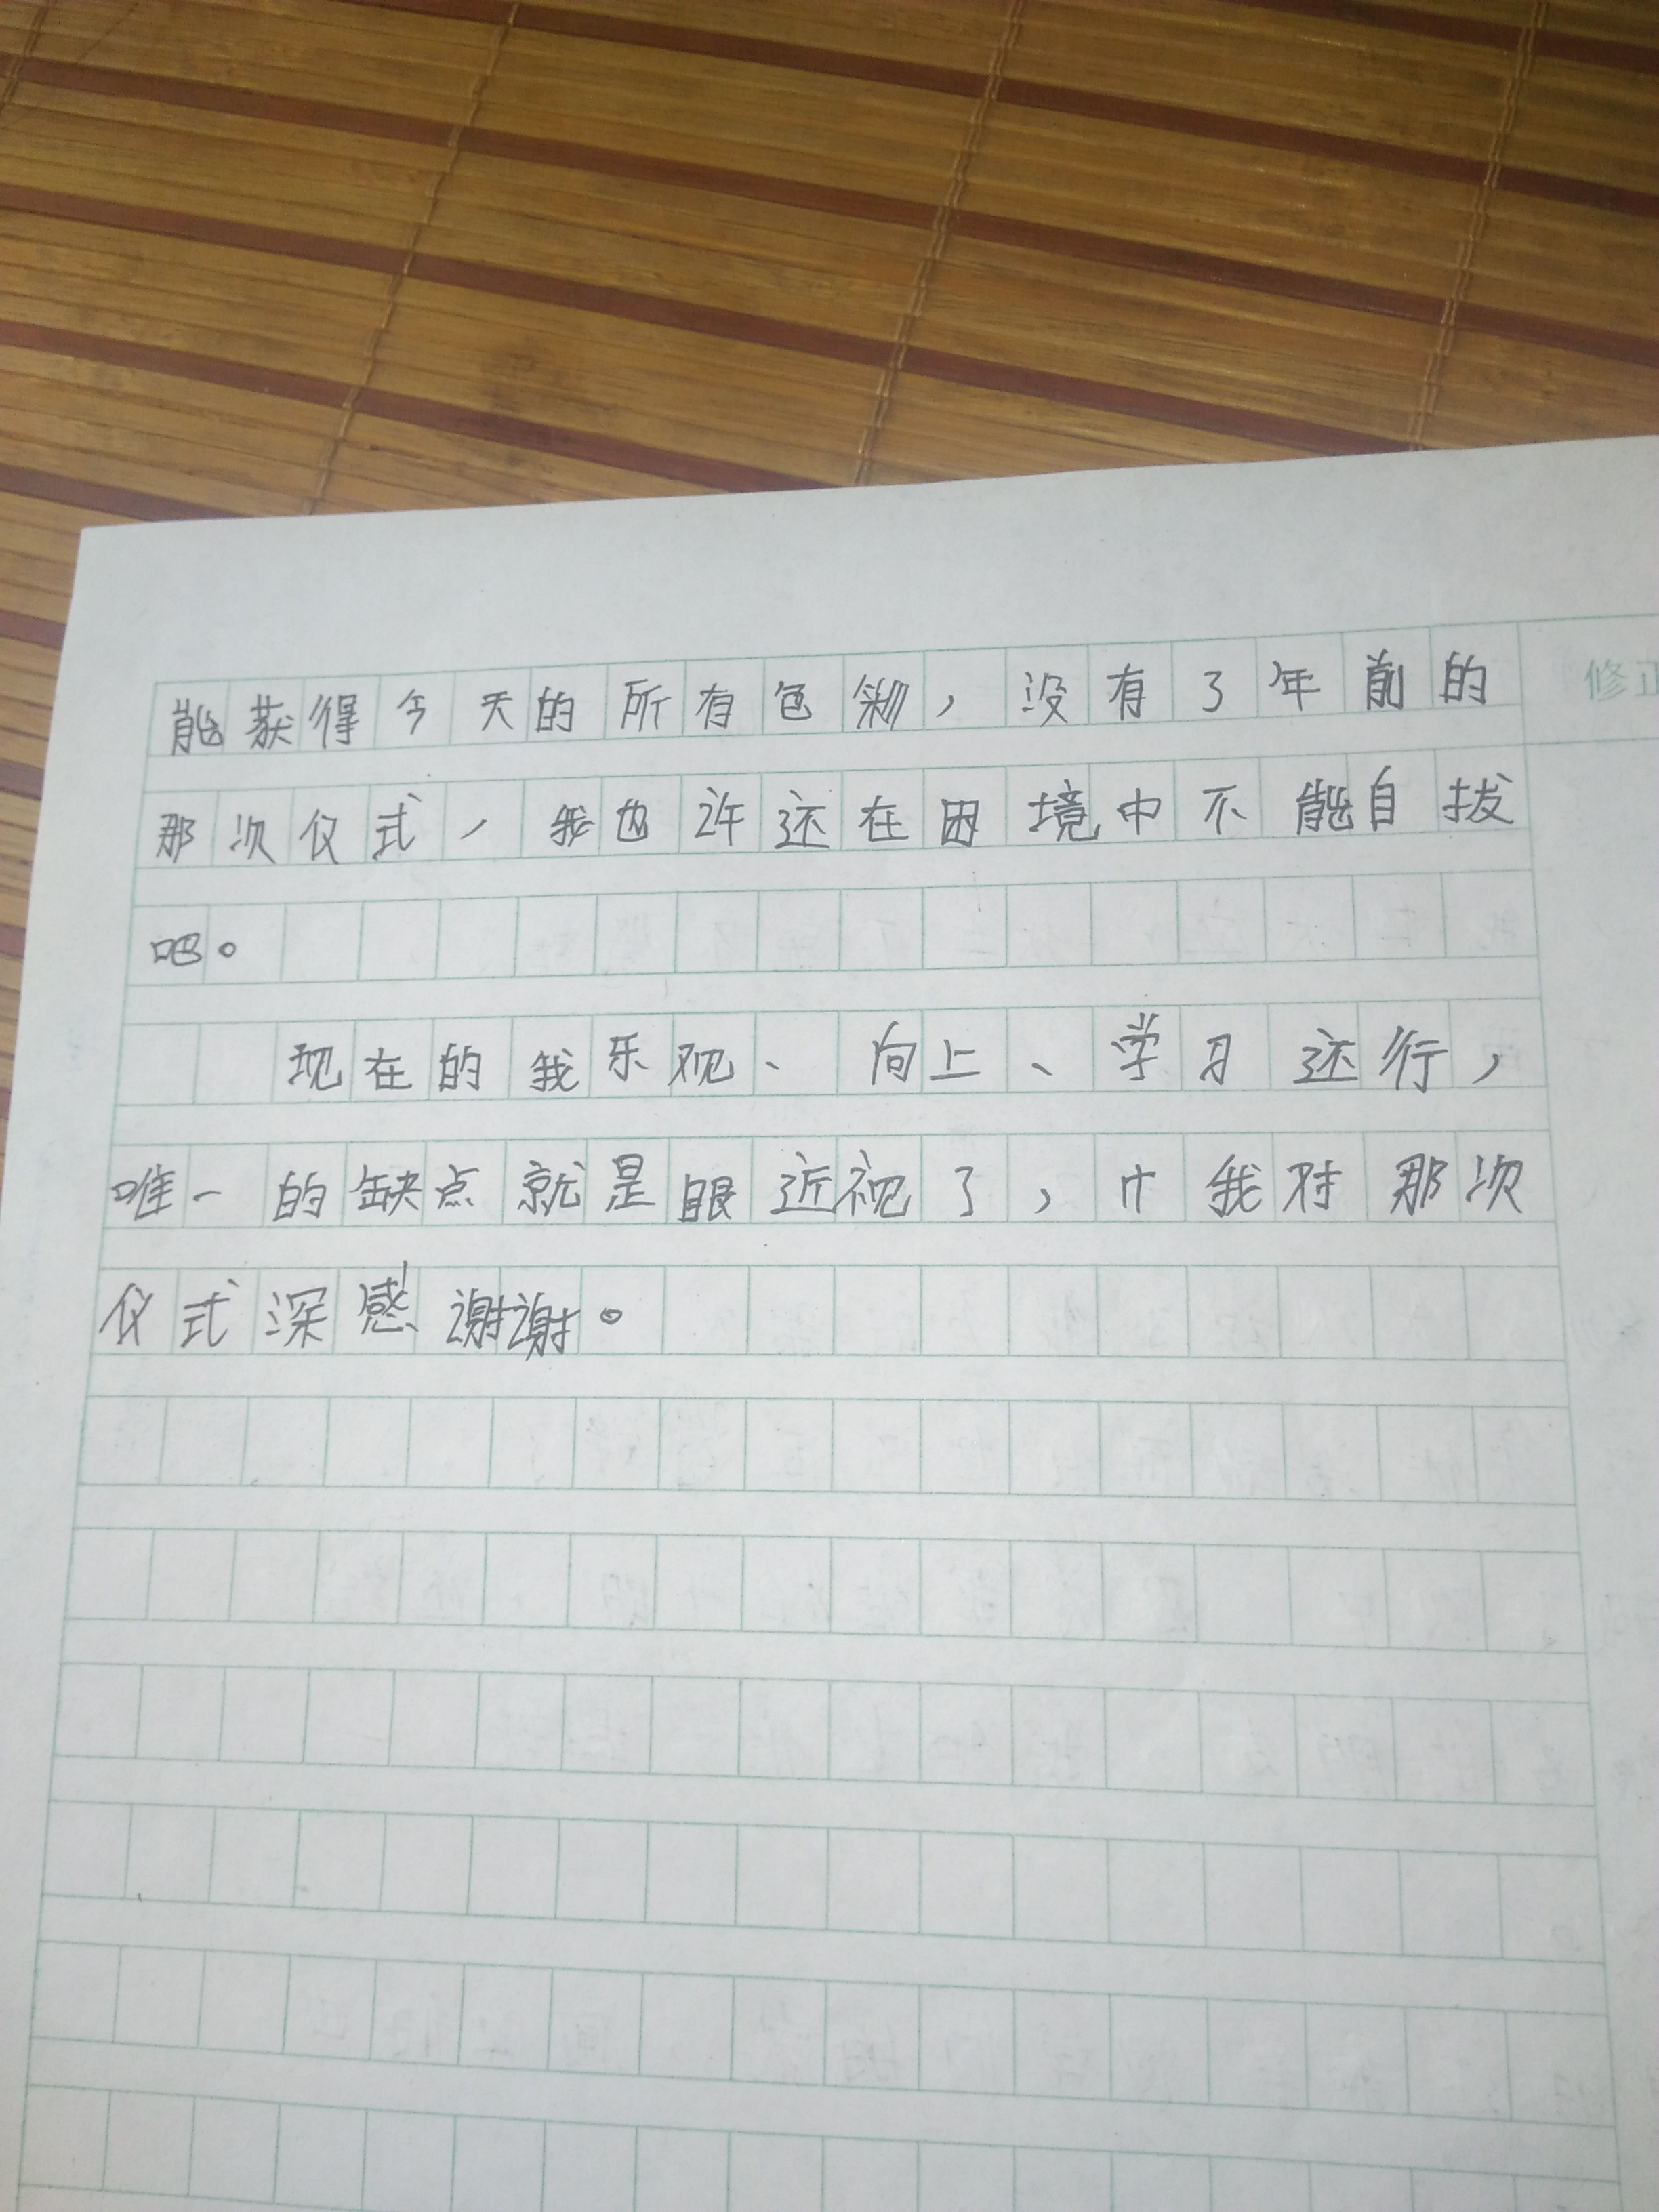 能获得今天的所有色彩，没有3年前的
修正
那次仪式，我也许还在困境中不能自拔
吧。
现在的我乐观、向上、学习还行，
唯一的缺点就是眼近视了，我对那次
仪式深感谢谢。